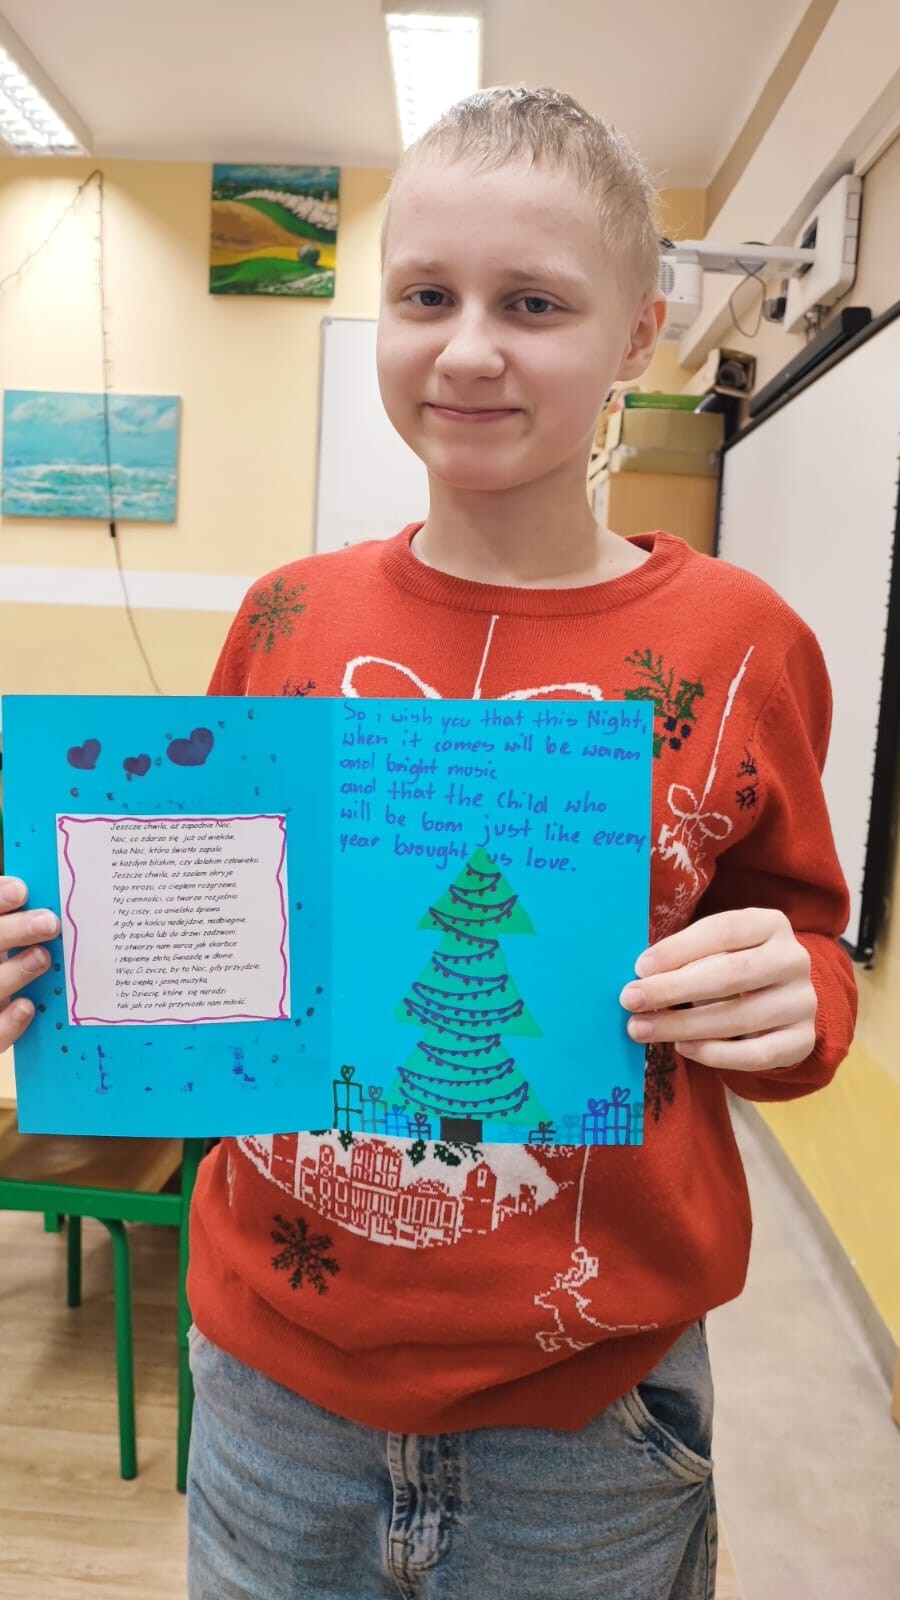 Jeszcze chwila, aż zapadnie Noc,
Noc, co zdarza się już od wieków,
taka Noc, która światło zapala
w każdym bliskim, czy dalekim człowieku.
Jeszcze chwila, aż szalem okryje
tego mrozu, co ciepłem rozgrzewa,
tej ciemności, co tworze rozjaśnia
i tej ciszy, co anielsko śpiewa.
A gdy w końcu nadejdzie, nadbiegnie,
gdy zapuka lub do drzwi zadzwoni,
to otworzy nam serca jak skarbce
i złapiemy złotą Gwiazdę w dłonie.
Więc Ci życzę, by ta Noc, gdy przyjdzie,
była ciepłą i jasną muzyką
i by Dziecię, które się narodzi
tak jak co rok przyniosło nam miłość.
So i wish you that this Night,
when it comes will be warm
and bright music
and that the Child who
will be born just like every
year brought us love.